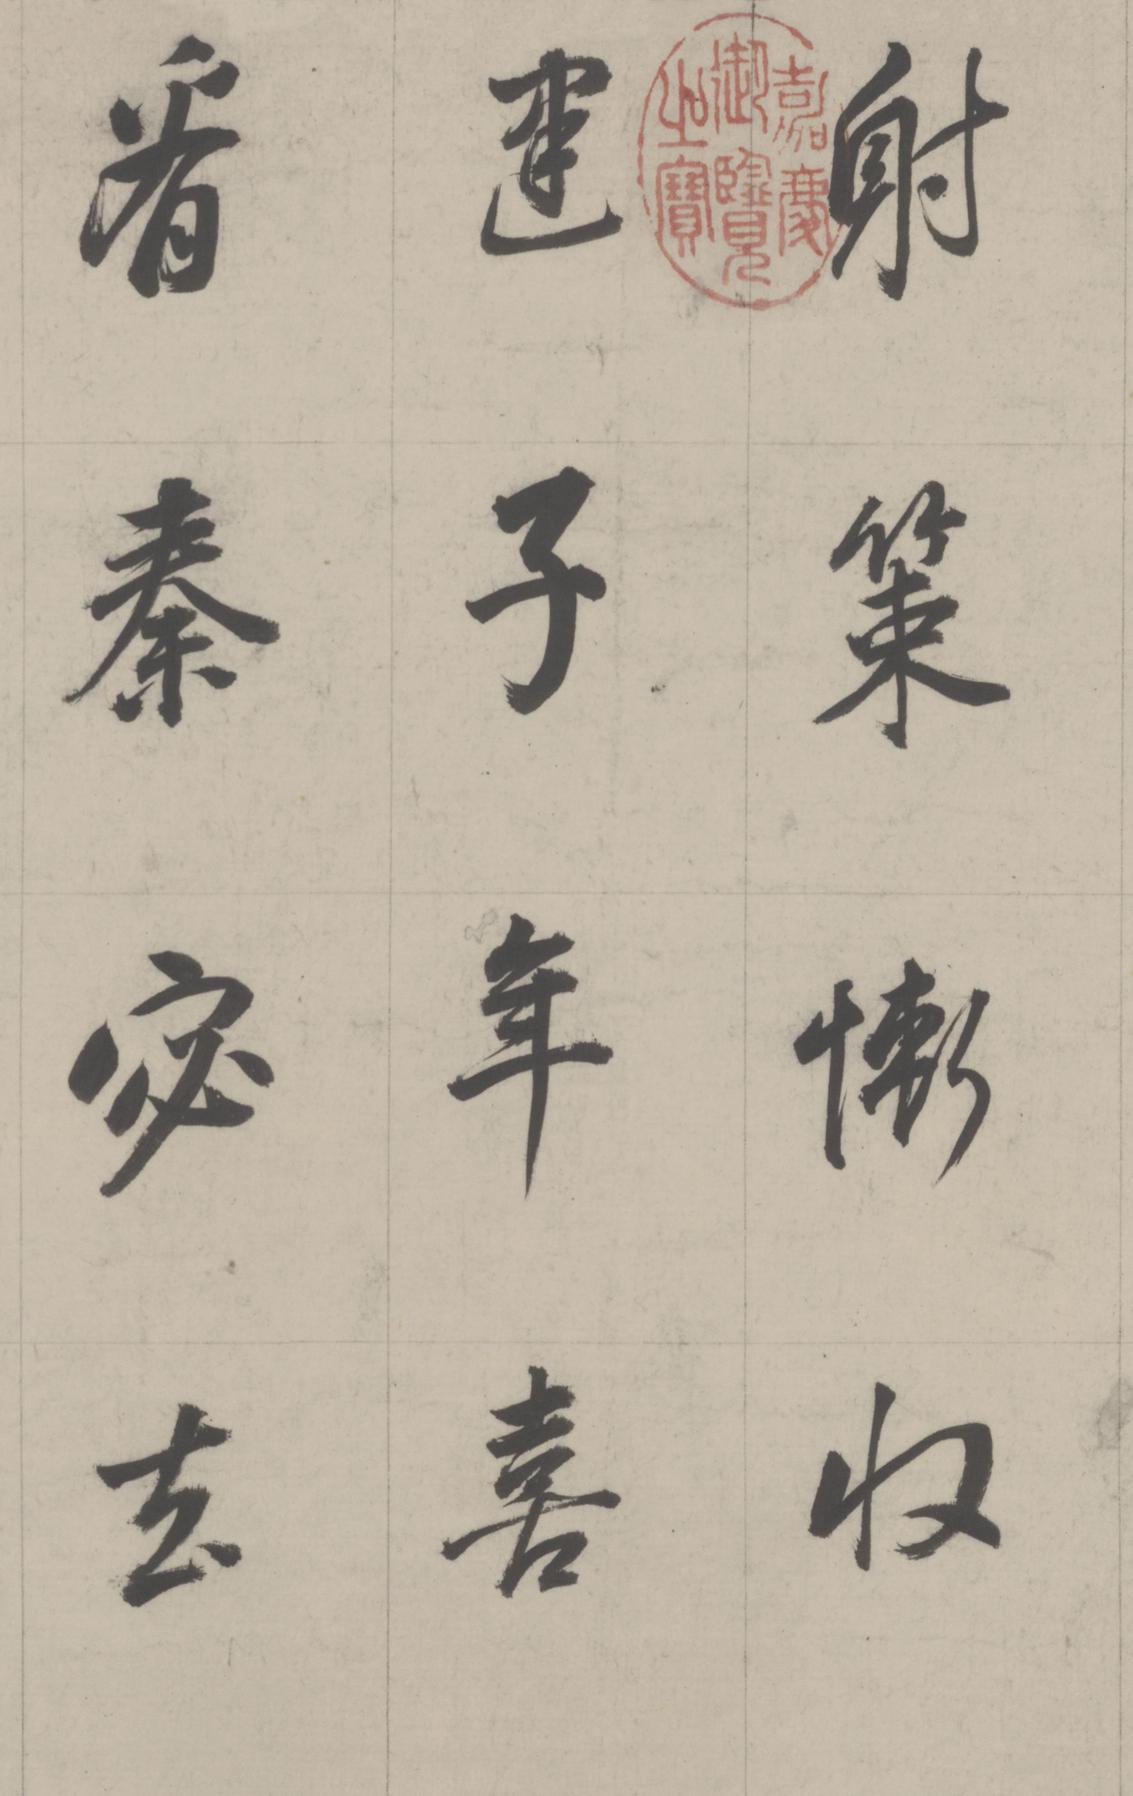 射策慚收
建子年喜
看秦宓去
嘉慶御覽之寶